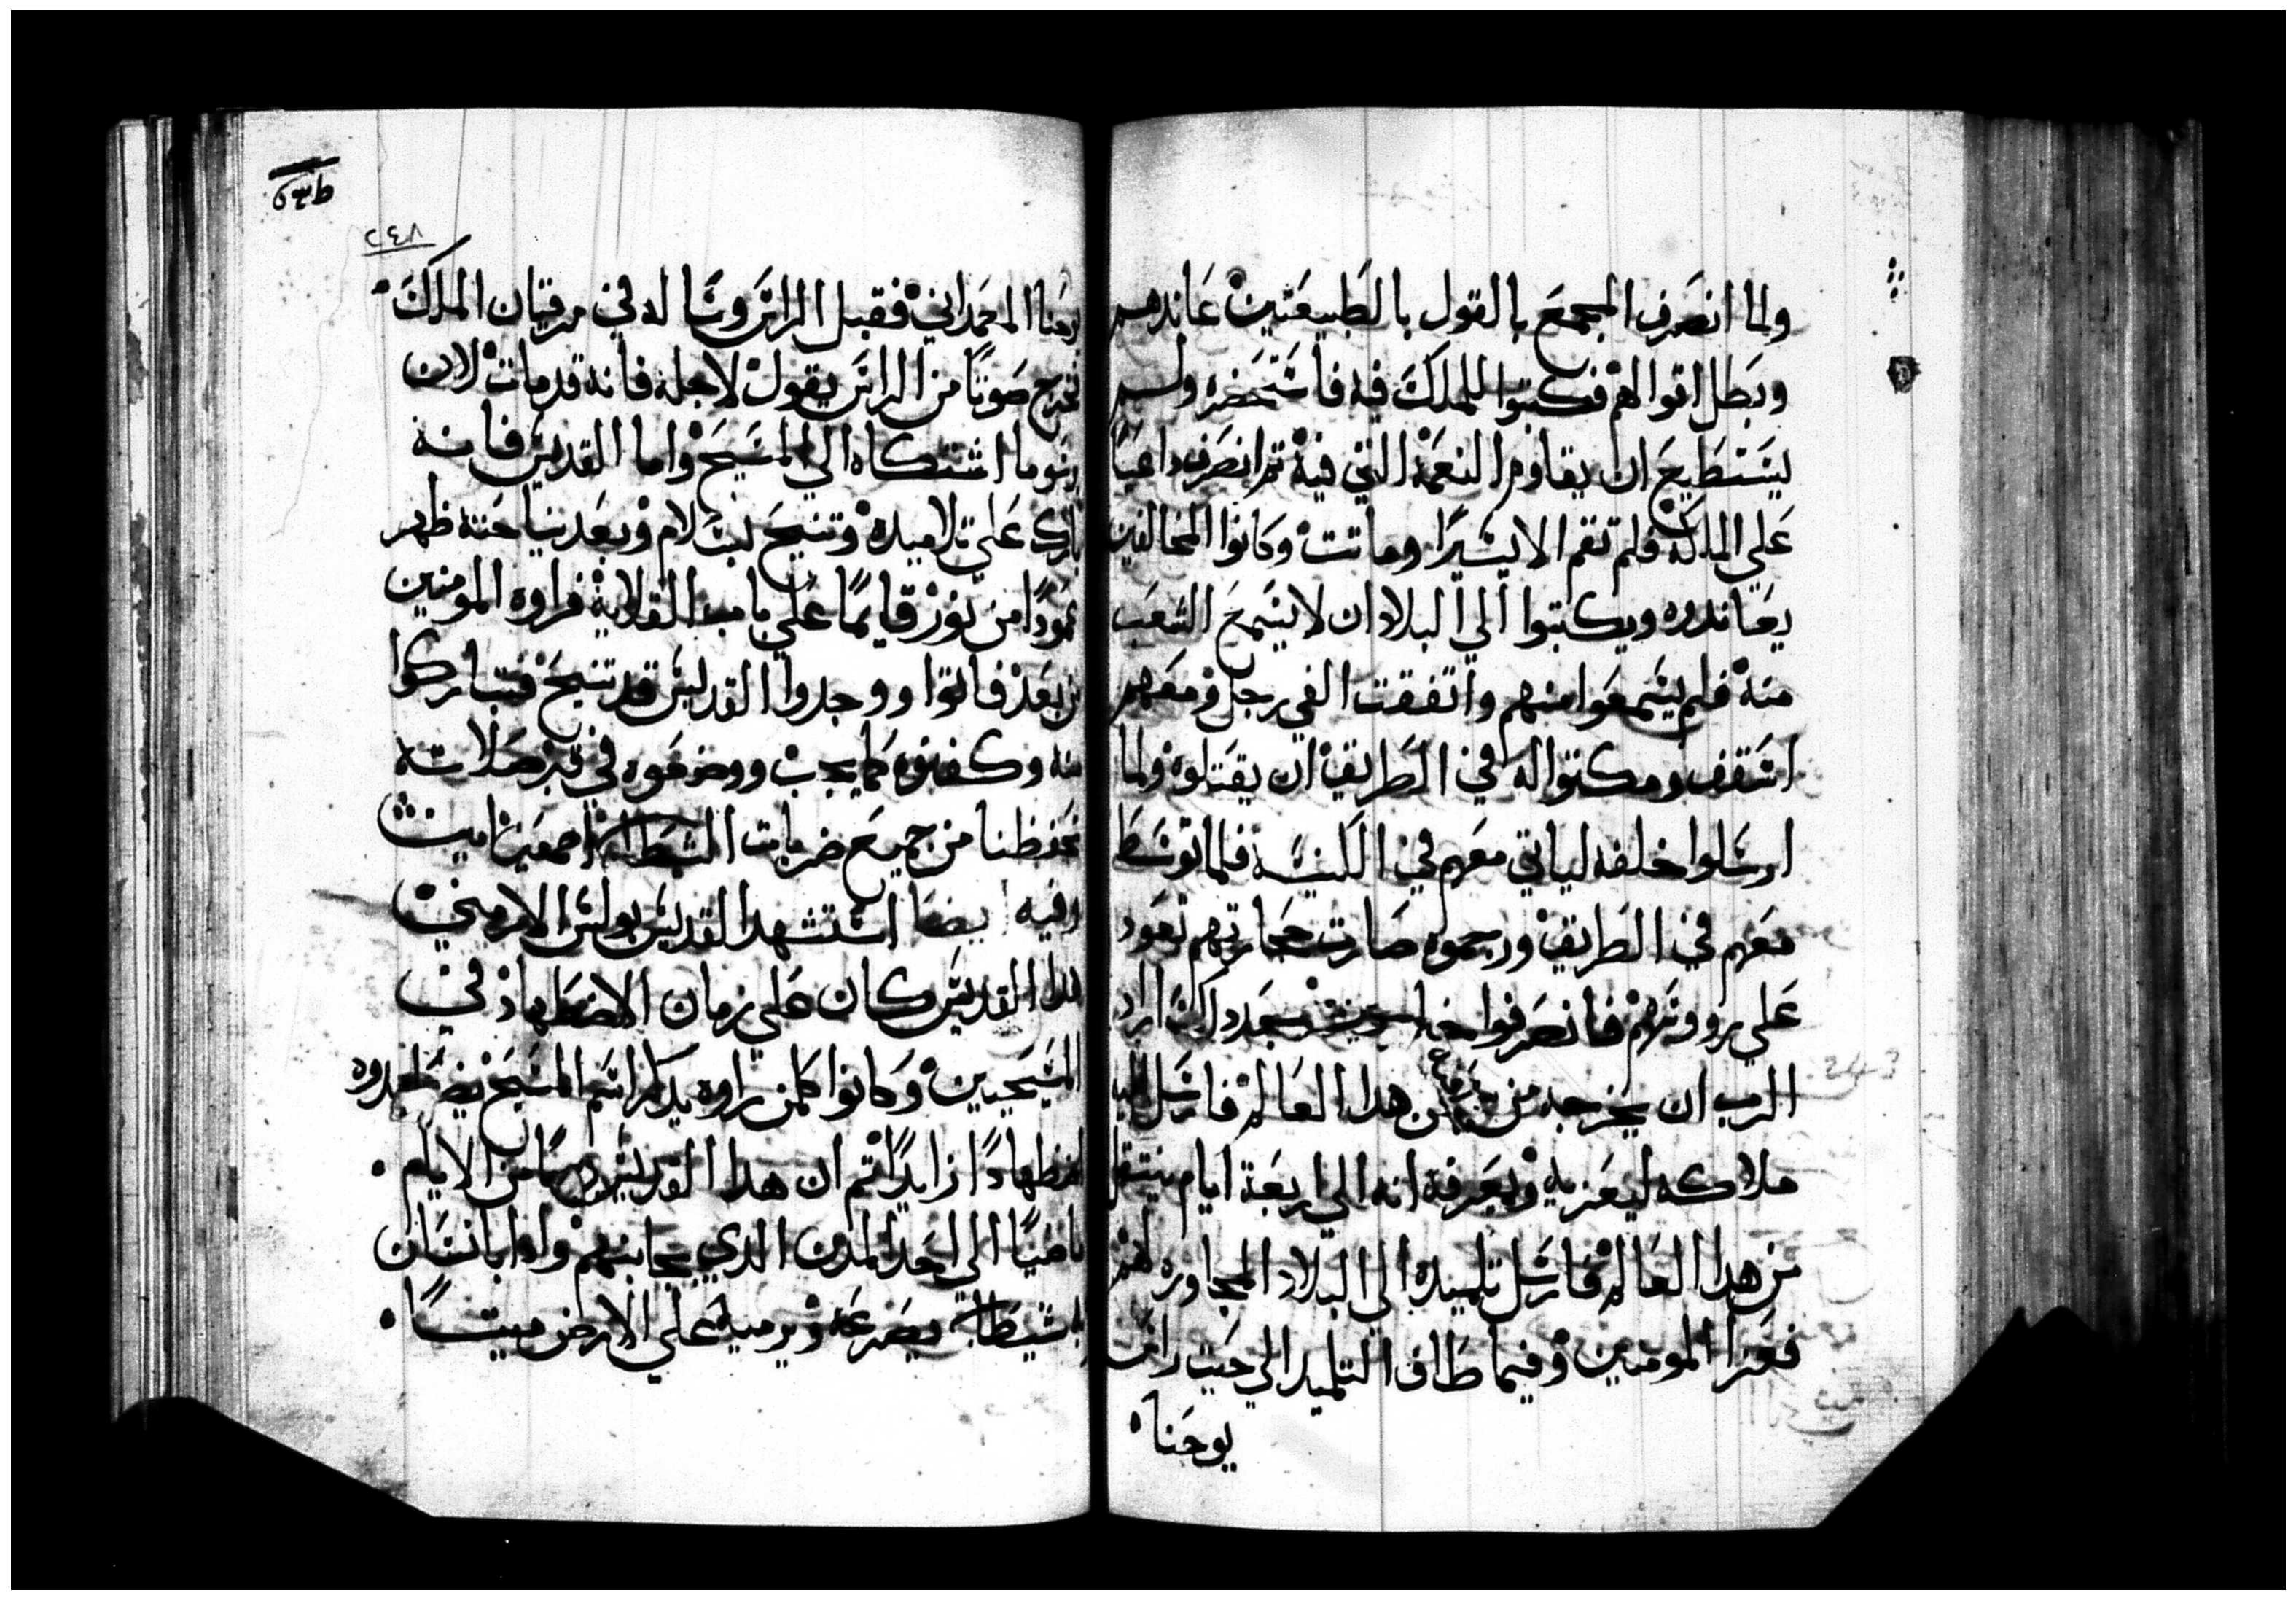 ولما انصرف المجمع بالقول بالطبيعتين عاندهم
وبطل اقوالهم فكتبوا للملك فيه فاستحضره ولم
يستطيع ان يقاوم النعمة التي فيه تم انصرف داعيا
على الملكة فلم تقم الا يسيرا وماتت وكانوا المخالفين
يعاندوه ويكتبوا الي البلاد ان لا يسمع الشعب
منه فلم يسمعوا منهم واتفقت الفي رجل ومعهم
اسقف ومكتوا له في الطريق ان يقتلوه ولما
ارسلوا خلفه لياتي معهم في الكنيسة فلما توسط
معهم في الطريق ورجموه صارت حجارتهم تعود
علي رووسهم فانصرفوا اراد
الرب ان يخرجه من هدا العالم فارسل اليه
ملاكه ليعزيه ويعرفه انه الي اربعة ايام ينتقل
من هدا العالم فارسل تلميده الي البلاد المجاوره لهم
فعزا المومنين وفيما طاف التلميد الي حيت راس
يوحنا
٢٤٨
يوحنا المعمداني فقبل الراس وسا له في مرقيان الملك
فخرج صوتا من الراس يقول لاجله فانه قد مات لان
اشتكاه الي المسيح واما القديس فانه
بارك علي تلاميده وتنيح بسلام وبعد نياحته ظهر
عمودا من نور قايما علي باب القلاية فراوه المومنين
من بعد فاتوا ووجدوا القديس قد تنيح فتباركوا
منه وكفنوه كما يجب ووضعوه في قبر صلاته
تحفظنا من جميع ضربات الشيطان اجمعين امين
وفيه ايضا استشهد القديس بولس الارمني
هدا القديس كان علي زمان الاضطهاد في
المسيحيين وكانوا كلمن راوه يدكر اسم المسيح يضطهدوه
اضطهادا زايدا تم ان هدا القديس يوما من الايام
ماضيا الي احد المدن الدي بجانبهم وادا بانسان
به شيطان يصرعه ويرميه علي الارض ميتا